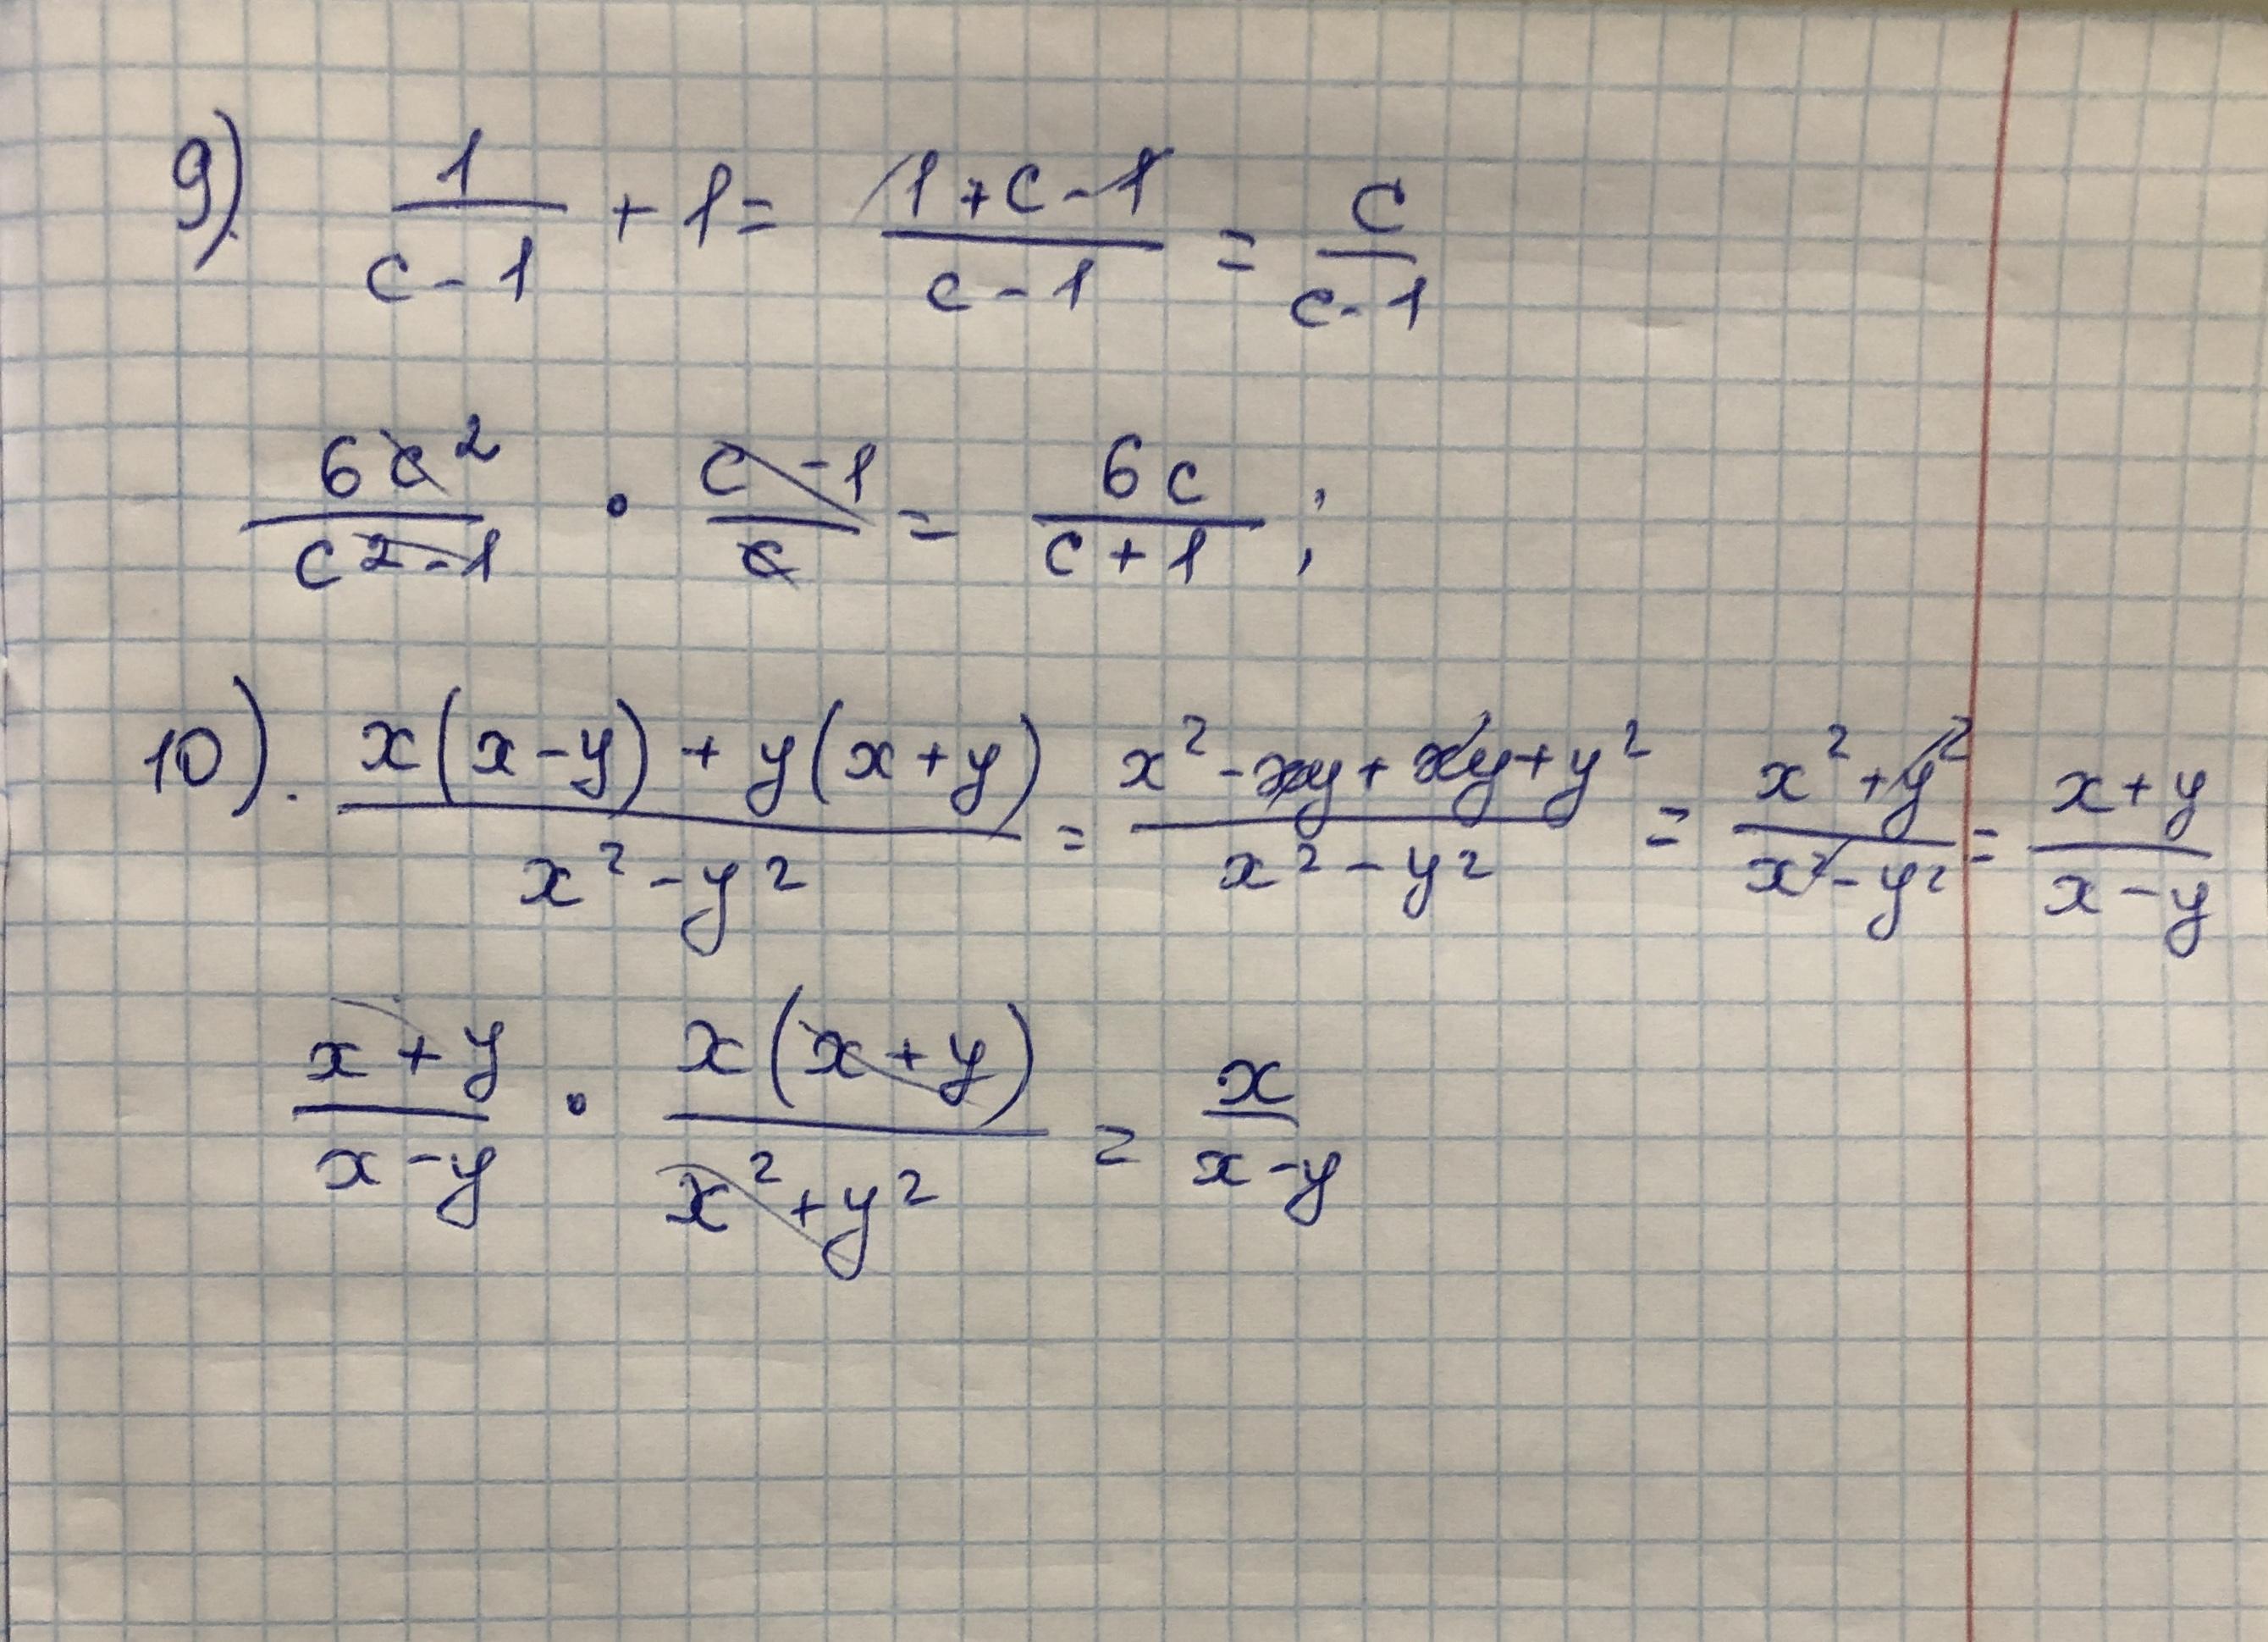 9) 1/(c-1) + 1 = (1+c-1)/(c-1) = c/(c-1)
6c²/(c²-1) • (c-1)/c = 6c/(c+1) ;
10). (x(x-y) + y(x+y))/(x²-y²) = (x²-xy+xy+y²)/(x²-y²) = (x²+y²)/(x²-y²) = (x+y)/(x-y)
(x+y)/(x-y) • x(x+y)/(x²+y²) = x/(x-y)